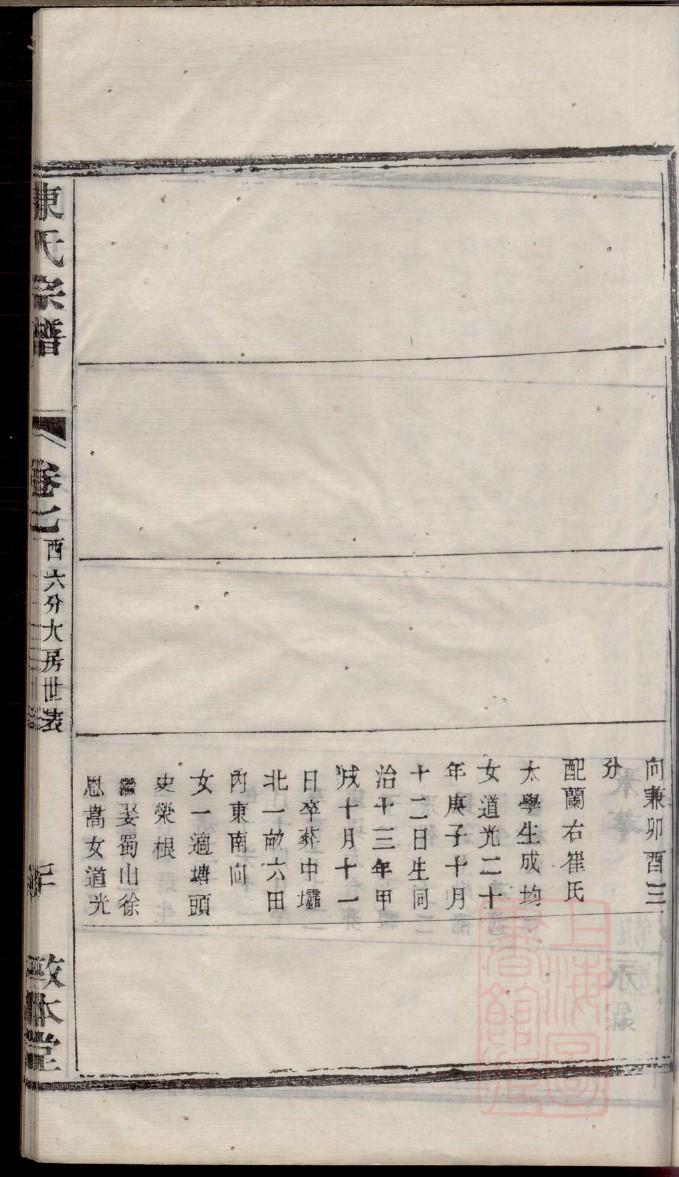 向兼卯酉三
分
配蘭右崔氏
太學生成均
女道光二十
年庚子十月
十二日生同
治十三年甲
戌十月十一
日卒葬中壩
北一畝六田
內東南向
女一適塘頭
史榮根
繼娶蜀山徐
恩嵩女道光
氏宗譜
卷七
西六分大房世表
敦本堂
上海圖書館藏